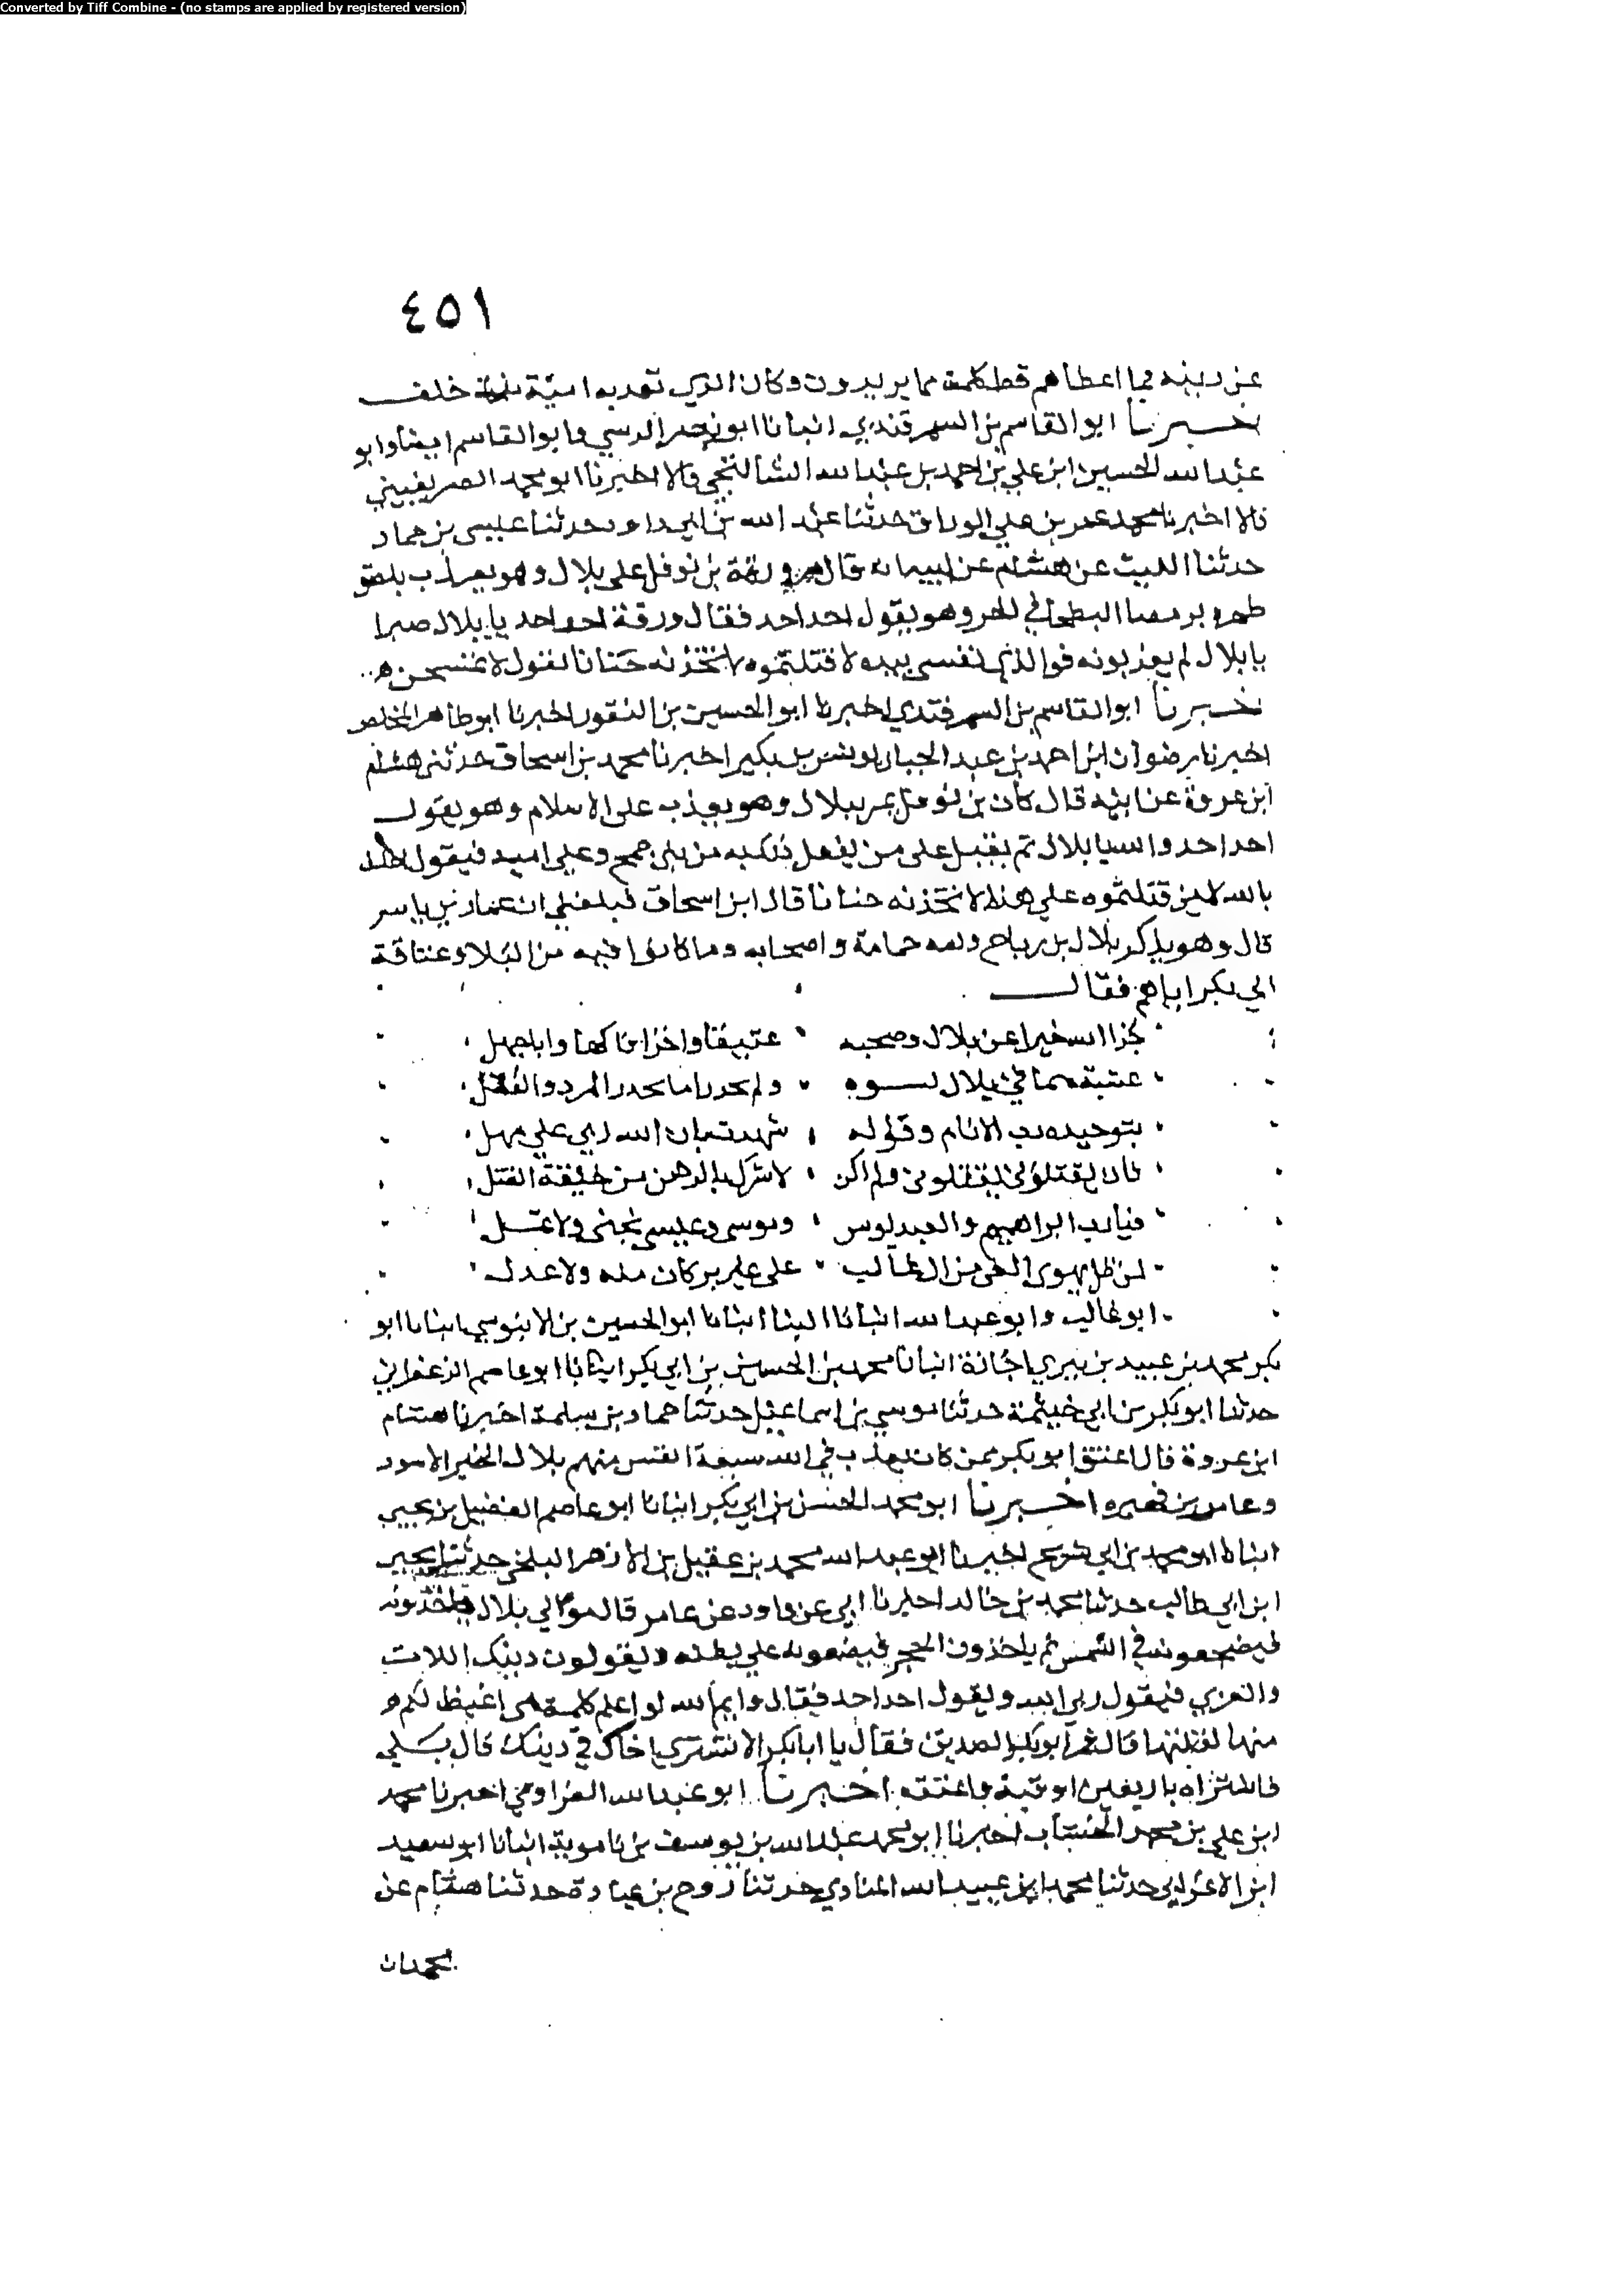 Converted by Tiff Combine - (no stamps are applied by registered version)
٤٥١
عن دينه فما اعطاهم قط كلمة مما يريدون وكان الذي تعذبه امية بن خلف
اخبرنا ابو القاسم بن السمرقندي انبانا ابو نصر الدينوري وابو القاسم ايضا وابو
عبد الله الحسين ابن علي بن احمد بن عبد الله الشالنجي قالا اخبرنا ابو محمد الصريفيني
قالا اخبرنا محمد بن عمر بن علي الوراق حدثنا عبد الله بن ابي داود حدثنا عيسى بن حماد
حدثنا الليث عن هشام عن ابيه انه قال مر ورقة بن نوفل على بلال وهو يعذب يلصق
ظهره برمضا البطحا في الحر وهو يقول احد احد فقال ورقة احد احد يا بلال صبرا
يا بلال لم يعذبونه فوالذي نفسي بيده لان قتلتموه لاتخذنه حنانا يقول لاتمسحن به
اخبرنا ابو القاسم بن السمرقندي اخبرنا ابو الحسين بن النقور اخبرنا ابو طاهر المخلص
اخبرنا رضوان ابن احمد بن عبد الجبار يونس بن بكير اخبرنا محمد بن اسحاق حدثني هشام
ابن عروة عن ابيه قال كان بن نوفل يمر ببلال وهو يعذب على الاسلام وهو يقول
احد احد والله يا بلال ثم يقبل على من يفعل ذلك به من بني جمح وعلى امية فيقول احلف
بالله لئن قتلتموه على هذا لاتخذنه حنانا قال ابن اسحاق فبلغني ان عمار بن ياسر
قال وهو يذكر بلال بن رباح وامه حمامة واصحابه وما كانوا فيه من البلا وعتاقة
ابي بكر اياهم فقال
جزا الله خيرا عن بلال وصحبه عتيقا واخزا فاكها وابا جهل
عشية هما في بلال بسوه ولم يحذرا ما يحذر المرء ذو العقل
بتوحيده رب الانام وقوله شهدت بان الله ربي على مهل
فان يقتلوني يقتلوني ولم اكن لاشرك بالرحمن من خيفة القتل
فيا رب ابراهيم والعبد يونس وموسى وعيسى نجني ولا تمل
لمن ظل يهوى الغي من ال غالب على غير بر كان منه ولا عدل
ابو غالب وابو عبد الله انبانا البنا انبانا ابو الحسين بن الابنوسي انبانا ابو
بكر محمد بن عبيد بن بيري اجازة انبانا محمد بن الحسين بن ابي بكر انبانا ابو عاصم الزعفراني
حدثنا ابو بكر بن ابي خيثمة حدثنا موسى بن اسماعيل حدثنا حماد بن سلمة اخبرنا هشام
ابن عروة قال اعتق ابو بكر ممن كان يعذب في الله سبعة انفس منهم بلال الخير الاسود
وعامر بن فهيرة اخبرنا ابو محمد الحسن بن ابي بكر انبانا ابو عاصم الفضيل بن يحيى
انبانا ابو محمد بن ابي شريح اخبرنا ابو عبد الله محمد بن عقيل بن الازهر البلخي حدثنا يحيى
ابن ابي طالب حدثنا محمد بن خالد اخبرنا ابي عن داود عن عامر قال موالي بلال ياخذونه
فيضجعونه في الشمس ثم ياخذون الحجر فيضعونه على بطنه ويقولون دينك اللات
والعزى فيقول ربي الله ويقول احد احد فقال وايم الله لو اعلم كلمة هي اغيظ لكم
منها لقلتها قال ثم ابو بكر الصديق فقال يا ابا بكر الا تشتري اخاك في دينك قال بلى
فاشتراه باربعين اوقية واعتقه اخبرنا ابو عبد الله الفراوي اخبرنا محمد
ابن علي بن محمد الخشاب اخبرنا ابو محمد عبد الله بن يوسف بن نامويه انبانا ابو سعيد
ابن الاعرابي حدثنا محمد ابن عبيد الله المنادي حدثنا روح بن عبادة حدثنا هشام عن
محمد ان